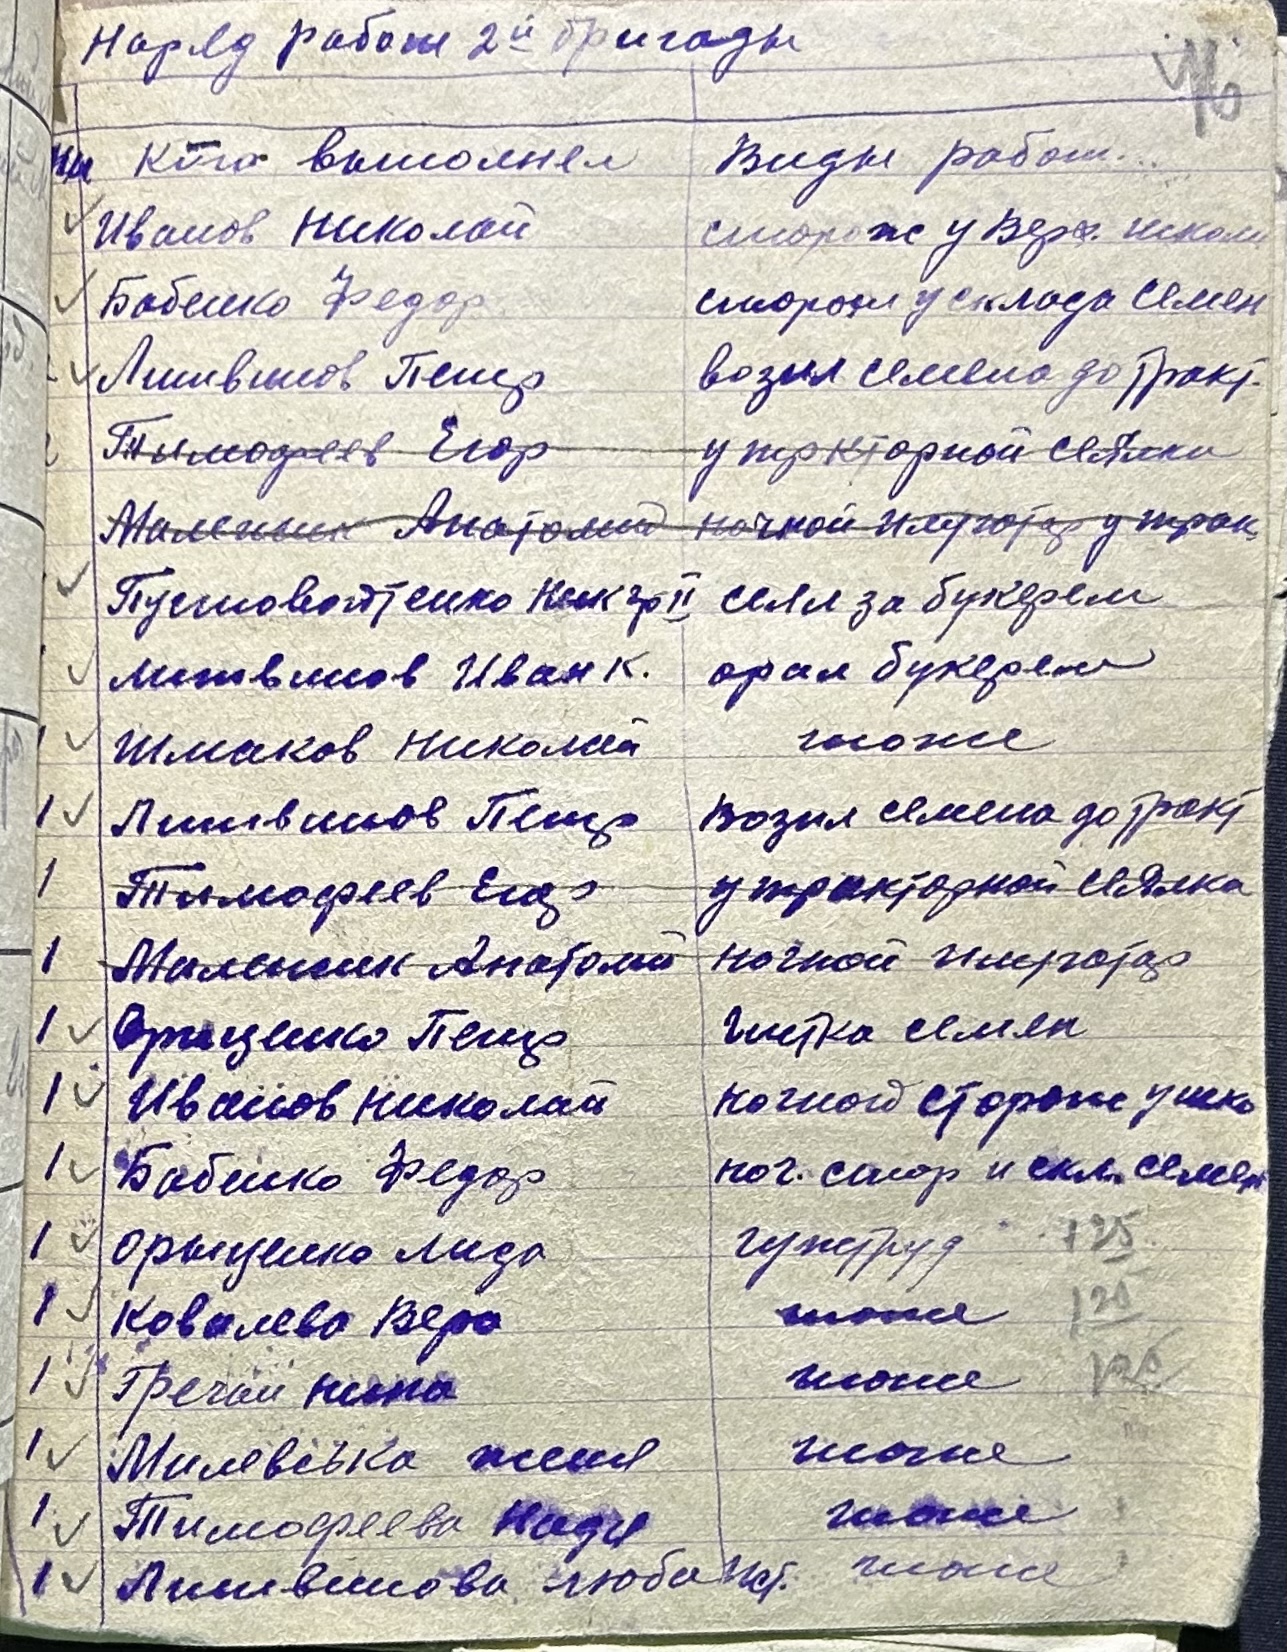 Наряд работ 2й бригады
Кто выполнял Виды работ...
Иванов Николай сторож у Верх. школы
Бабенко Федор сторож у склада семен
Литвинов Петр возил семена до тракт.
Тимофеев Егор у тркторной сеялки
Маленик Анатолий ночной у трак
Пустовойтенко II сеял за букерем
Литвинов Иван К. орал букерем
Шмаков Николай тоже
1 Литвинов Петр возил семена до тракт
1 Тимофеев Егор у тракторной сеялка
1 Маленик Анатолий ночной
1 Орищенко Петр читка семян
1 Иванов Николай ночной сторож у шко
1 Бабенко Федор ноч. стор и скл. семен
1 Орыщенко Лида гужтруд 125
1 Ковалева Вера тоже 125
1 Гречай Нина тоже 125
1 Милевська Женя тоже
1 Тимофеева Надя тоже
1 Литвинова Люба тоже